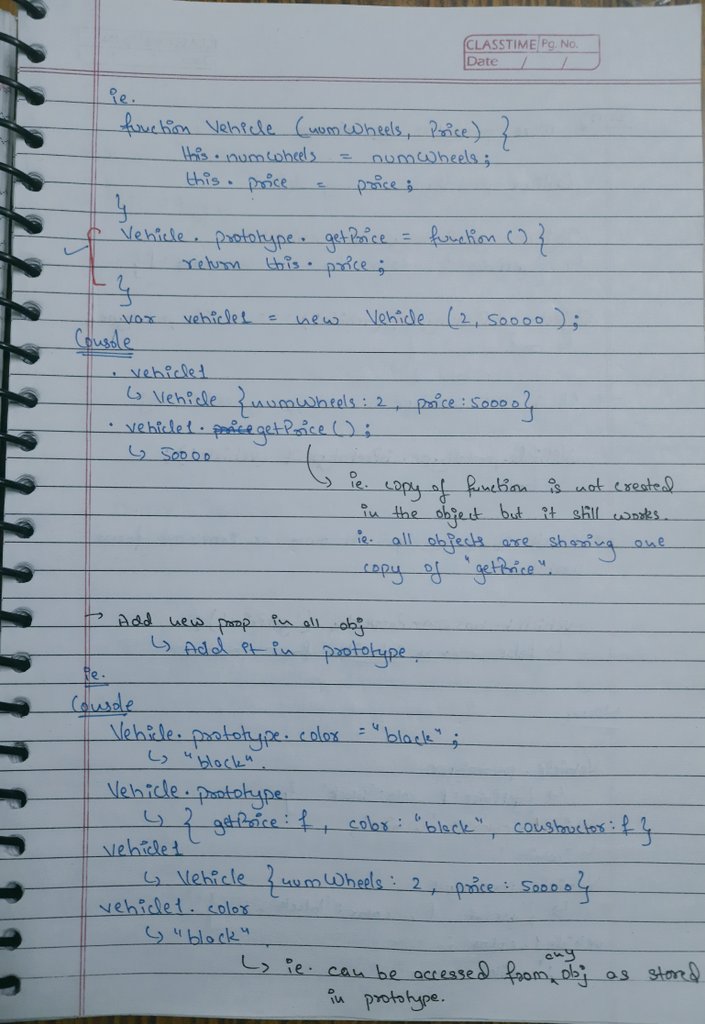 CLASSTIME Pg. No.
Date / /
ie.
function Vehicle (numWheels, Price) {
this.numwheels = numWheels;
this.price = price;
}
Vehicle.prototype.getPrice = function () {
return this.price;
}
var vehicle1 = new Vehicle (2, 50000);
Console
• vehicle1
↳ Vehicle {numWheels: 2, price: 50000}
• vehicle1.price getPrice();
↳ 50000
↳ ie. copy of function is not created
in the object but it still works.
ie. all objects are sharing one
copy of "getPrice".
→ Add new prop in all obj
↳ Add it in prototype.
ie.
Console
Vehicle.prototype.color = "black";
↳ "black".
Vehicle.prototype
↳ { getPrice: f, color: "black", constructor: f }
vehicle1
↳ Vehicle {numWheels: 2, price: 50000}
vehicle1.color
↳ "black"
↳ ie. can be accessed from any obj as stored
in prototype.